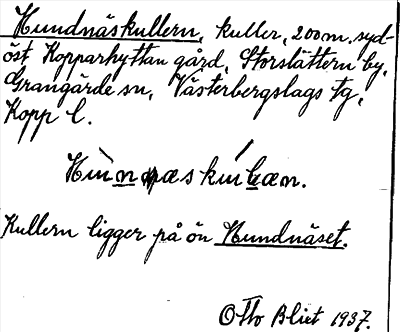 Hundnäskullern, kuller, 200m. syd-
öst Kopparhyttan gård, Storslättern by,
Grangärde sn, Västerbergslags tg,
Kopp l.
Kullern ligger på ön Hundnäset.
Otto Blixt 1937.